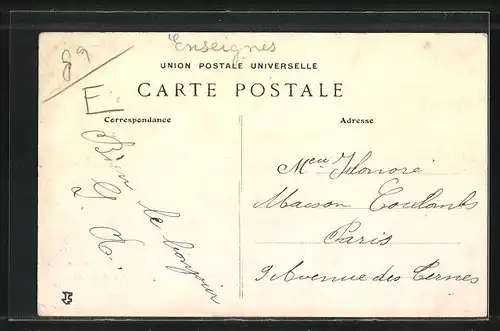 89
E
Enseignes
UNION POSTALE UNIVERSELLE
CARTE POSTALE
Correspondance
Bien le bonjour
Adresse
Honoré
Maison Coulombs
Paris
9 Avenue des Ternes